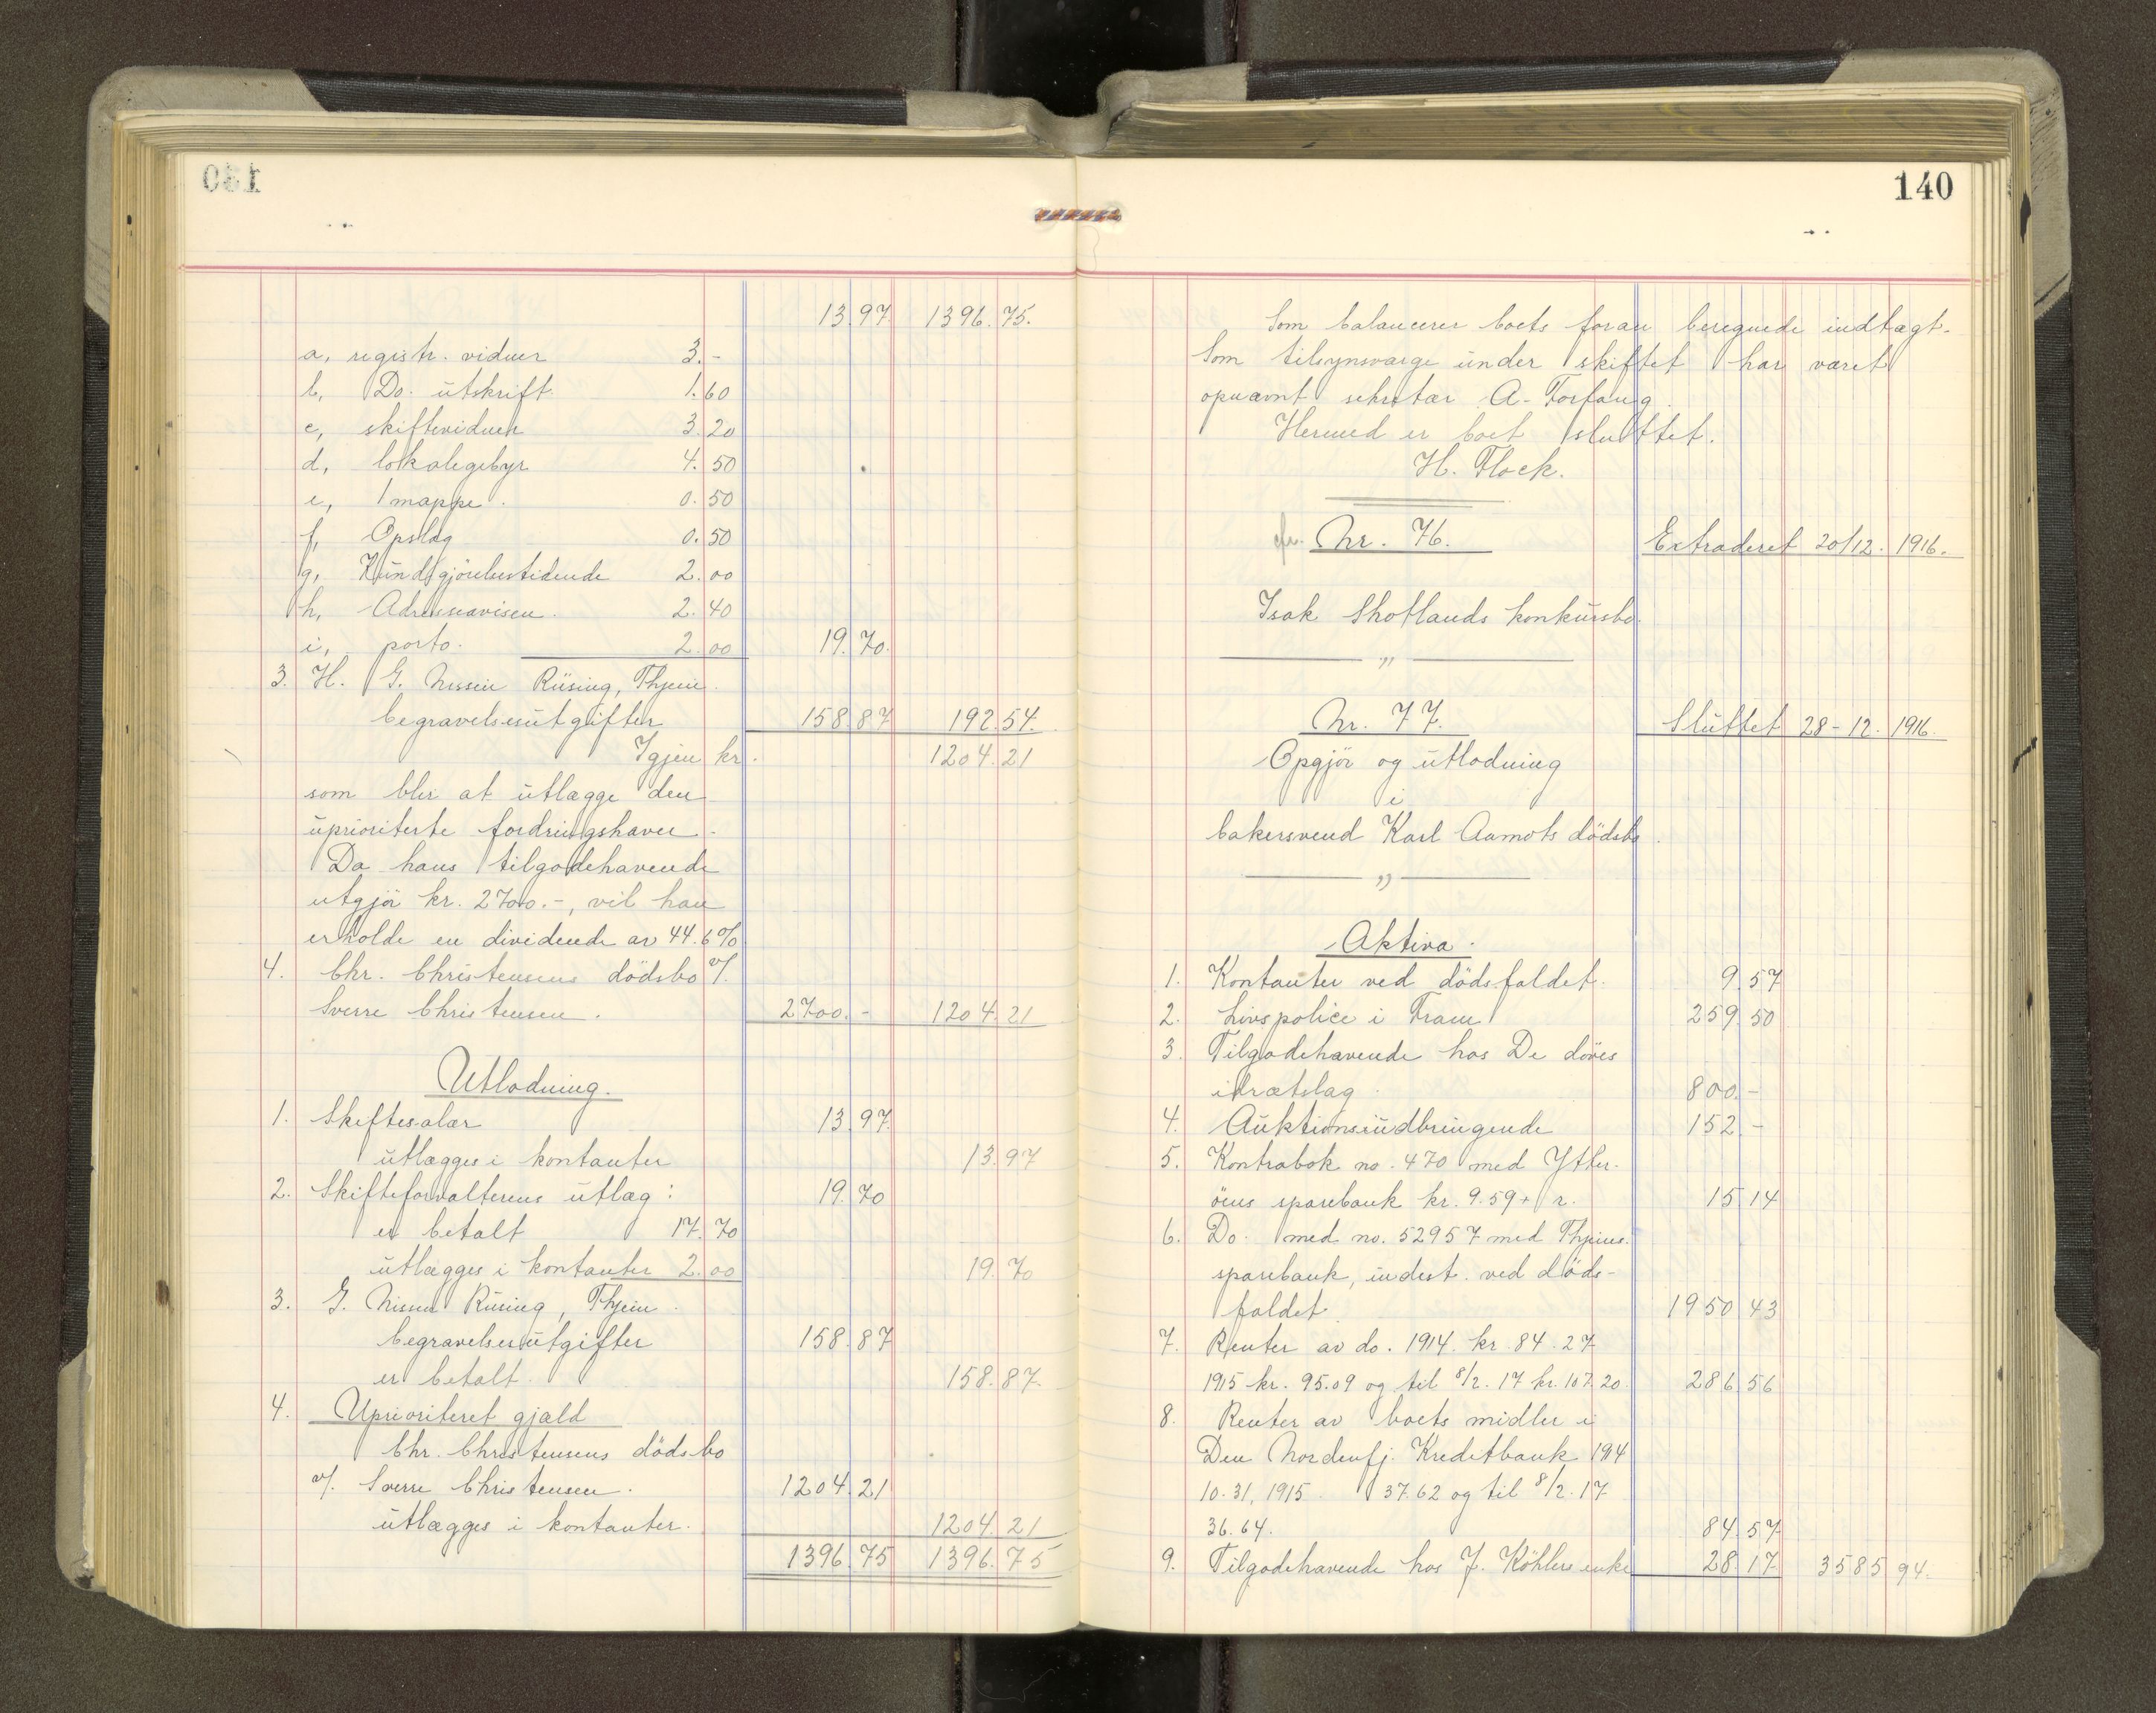 13.97. 1396.75.
a, registr. vidner 3.-
b, Do. utskrift. 1.60
c, skiftevidner 3.20
d, lokalegebyr 4.50
e, 1 mappe. 0.50
f, Opslag 0.50
g, Kundgjörelsestidende 2.00
h, Adresseavisen. 2.40
i, porto. 2.00 19.70.
3. H. G. Nissen Rüsing, Thjem.
begravelsesutgifter 158.87 192.54.
Igjen kr. 1204.21
som blir at utlægge den
uprioriterte fordringshaver.
Da hans tilgodehavende
utgjör kr. 2700.-, vil han
erholde en dividende av 44.6%
4. Chr. Christensens dödsbo v/.
Sverre Christensen. 2700.- 1204.21
Utlodning.
1. Skiftesalær 13.97.
utlægges i kontanter 13.97
2. Skifteforvalterens utlæg: 19.70
er betalt 17.70
utlægges i kontanter 2.00 19.70
3. G. Nissen Rüsing, Thjem.
begravelsesutgifter 158.87
er betalt. 158.87.
4. Uprioriteret gjæld
Chr. Christensens dödsbo
v/. Sverre Christensen. 1204.21
utlægges i kontanter. 1204.21
1396.75 1396.75
140
Som balancerer boets foran beregnede indtægt.
Som tilsynsværge under skiftet har været
opnævnt sekretær A. Forfang.
Hermed er boet sluttet.
H. Flock.
Nr. 76. Extraderet 20/12. 1916.
Isak Shotlands konkursbo.
— " —
Nr. 77. Sluttet 28-12. 1916.
Opgjör og utlodning
i
bakersvend Karl Aamots dödsbo.
— " —
Aktiva.
1. Kontanter ved dödsfaldet. 9.57
2. Livspolice i Fram 259.50
3. Tilgodehavende hos De döves
idrætslag. 800.-
4. Auktionsindbringende 152.-
5. Kontrabok no. 470 med Ytter-
öens sparebank kr. 9.59 + r. 15.14
6. Do. med no. 52957 med Thjems.
sparebank, indest. ved döds-
faldet. 1950.43
7. Renter av do. 1914. kr. 84.27
1915 kr. 95.09 og til 8/2. 17 kr. 107.20. 286.56
8. Renter av boets midler i
Den Nordenfj. Kreditbank 1914
10.31, 1915. 37.62 og til 8/2. 17
36.64. 84.57
9. Tilgodehavende hos J. Köhlers enke 28.17. 3585.94.